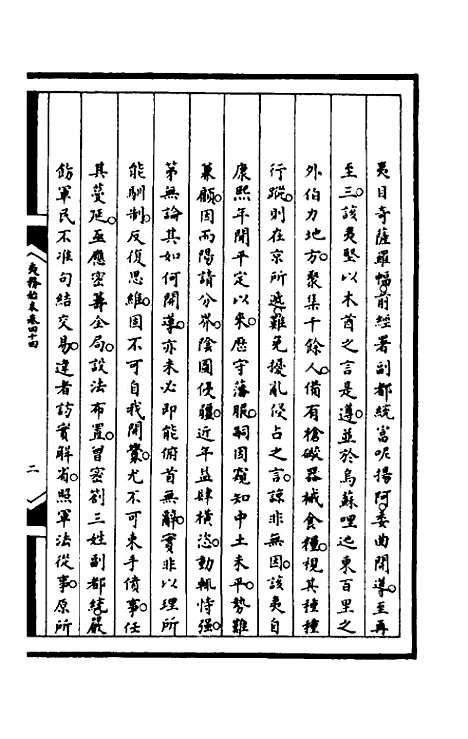 夷目奇薩羅幅。前經署副都統富呢揚阿。委曲開導。至再
至三。該夷堅以木酋之言是遵。並於烏蘇哩迤東百里之
外伯力地方。聚集千餘人。備有槍礮器械食糧。視其種種
行蹤。則在京所遞。難免擾亂侵占之言。諒非無因。該夷自
康熙年間平定以來。歷守藩服。嗣因窺知中土未平。勢難
兼顧。因而陽請分界。陰圖侵疆。近年益肆橫恣。動輒恃强。
第無論其如何開導。亦未必即能俯首無辭。實非以理所
能馴制。反復思維。固不可自我開釁。尤不可束手僨事。任
其蔓延。亟應密籌全局。設法布置。曾密劄三姓副都統。嚴
飭軍民不准句結交易。違者訪實解省。照軍法從事。原所
夷務始末卷四十四
二